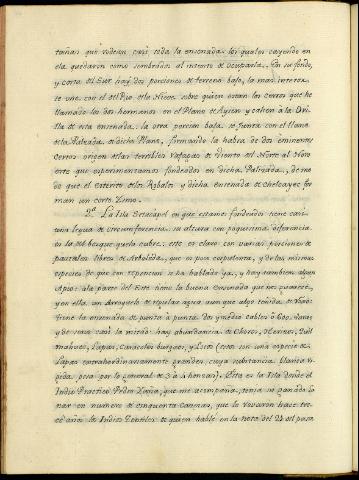 tañas que rodean casi toda la ensenada los quales cayendo en
ella quedaron como sembrados al intento de ocuparla. En su fondo,
y costa del Sur hay dos porciones de terreno bajo, la mas interior
se une con el del Rio de la Nieve sobre quien estan los cerros que he
llamado los dos hermanos en el Plano de Aysen y cahen á la Ori-
lla de esta ensenada. la otra porcion baja se junta con el llano
de la Palizada de dicho Plano, formando la habra de dos eminentes
cerros origen de las terribles rafagas de viento del Norte al Nor-
este que experimentamos fondeados en dicha Palizada, de mo-
do que el Esterito de los Robalos y dicha ensenada de Chelcayec for-
man un corto Ismo.
2.ª La Isla Setacapel en que estamos fondeados tiene casi
una legua de circumferencia: su altura con poquisima diferencia
es la del bosque que la cubre: este es claro con varias porciones de
pantalon libres de Arboleda, que es poca corpulenta, y de las mismas
especies de que con repeticion se ha hablado ya, y hay tambien algun
Apio: á la parte del Este tiene la buena ensenada que nos guarece,
y en ella, un Arroyuelo de regular agua aunque algo teñida de
Tiene la ensenada de punta á punta dos y medio cables ó 600. varas,
y de saco casi la mitad: hay abundancia de Choros, Hervies, Quil-
mahues, Lapas, Caracoles burgaes, y Locos (estos son una especie de
Lapas extrahordinariamente grandes, cuya substancia blanca ri-
gida pesa por lo general de 3 a 4 honzas). Esta es la Isla donde el
Indio Practico Pedro que me acompaña, tenia su ganado la-
nar en numero de cinquenta cavezas, que le rovaron hace tre-
ce años los Indios Gentiles de quien hablé en la nota del 21 del pasa